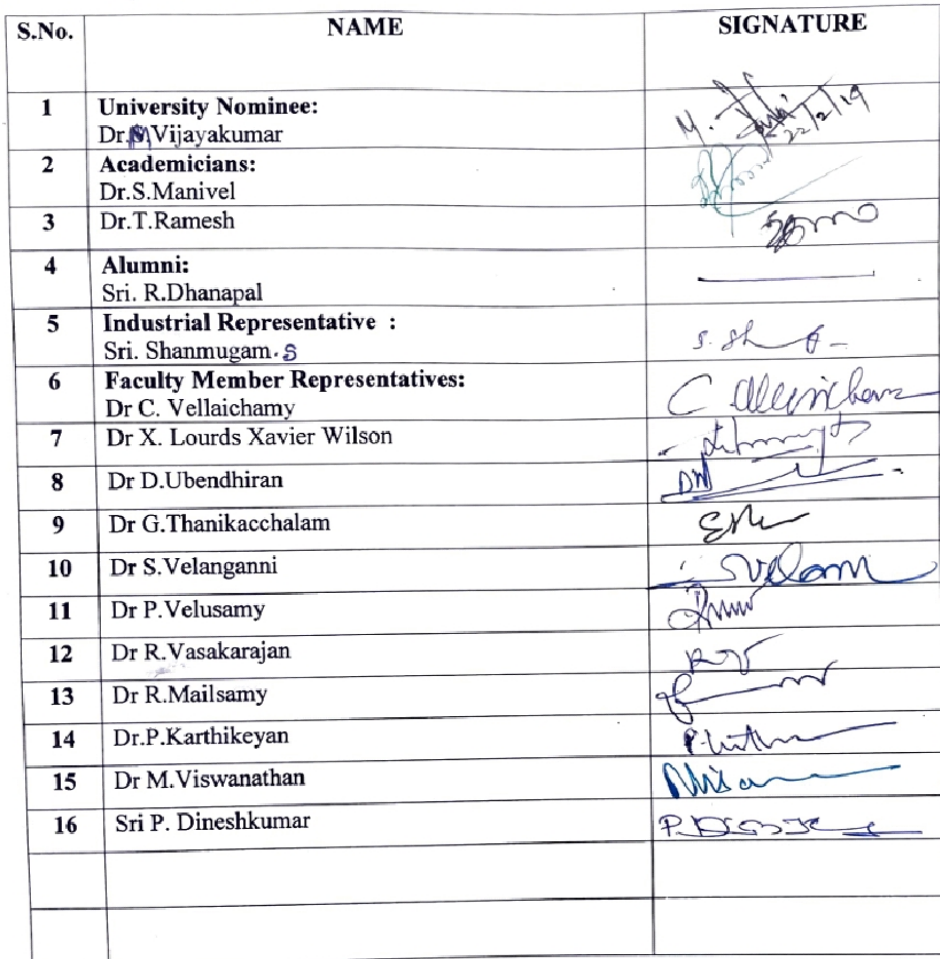 S.No. NAME SIGNATURE
1 University Nominee:
Dr.M Vijayakumar
22/2/19
2 Academicians:
Dr.S.Manivel
3 Dr.T.Ramesh
4 Alumni:
Sri. R.Dhanapal
5 Industrial Representative :
Sri. Shanmugam. S
6 Faculty Member Representatives:
Dr C. Vellaichamy
7 Dr X. Lourds Xavier Wilson
8 Dr D.Ubendhiran
9 Dr G.Thanikacchalam
10 Dr S.Velanganni
11 Dr P.Velusamy
12 Dr R.Vasakarajan
13 Dr R.Mailsamy
14 Dr.P.Karthikeyan
15 Dr M.Viswanathan
16 Sri P. Dineshkumar